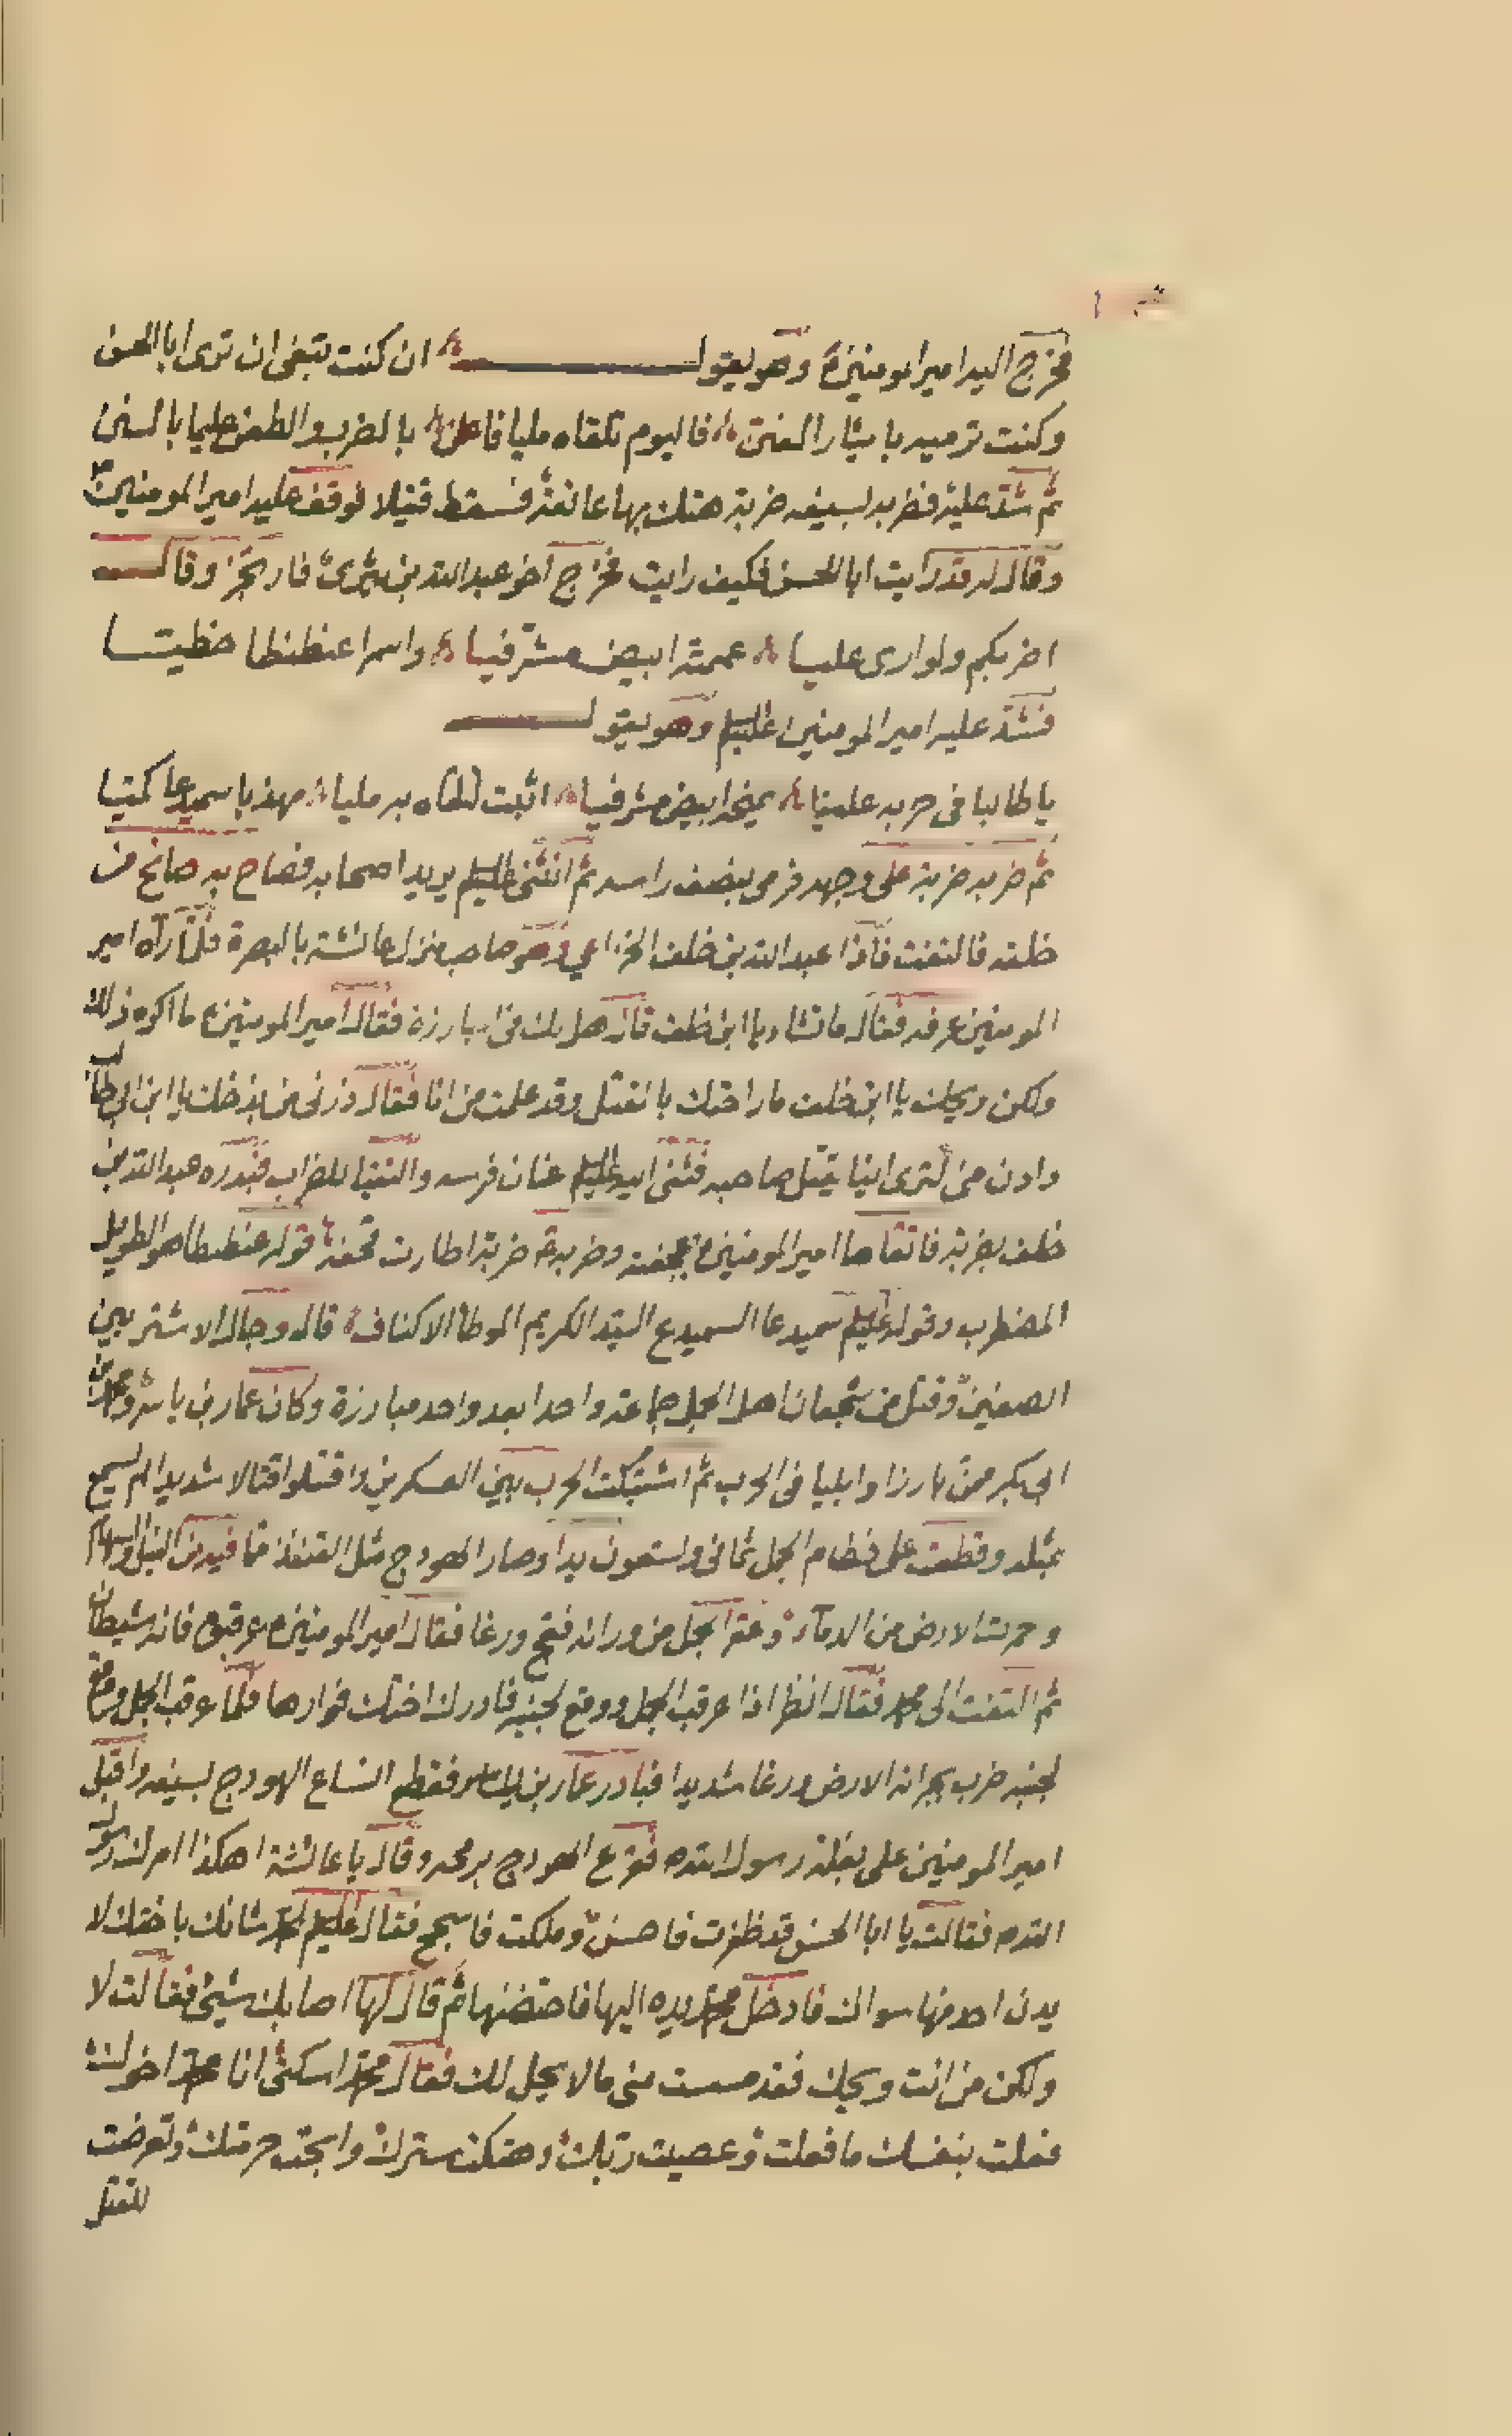 فخرج اليه امير المومنين ع وهو يقول ان كنت تبغى ان ترى ابا الحسن
وكنت ترميه بايثار الفتن فاليوم تلقاه مليا فاعلن بالضرب والطعن عليما بالسنن
ثم شد عليه فضربه بسيفه ضربة هتك بها عاتقه فسقط قتيلا فوقف عليه امير المومنين ع
وقال له قد رايت ابا الحسن فكيف رايت فخرج اخو عبد الله بن يثرى فارتجز وقال
اضربكم ولو ارى عليا عممته ابيض مشرفيا واسمرا عنطنطا خطيا
فشد عليه امير المومنين عليلم وهو يقول
يا طالبا فى حربه عليا يمنحه ابيض مشرفيا اثبت لتلقاه به مليا مهذبا سميدعا كميا
ثم ضربه ضربة على وجهه فرمى بنصف راسه ثم انثنى عليلم يريد اصحابه فصاح به صائح من
خلفه فالتفت فاذا عبد الله بن خلف الخزاعي وهو صاحب منزل عائشة بالبصرة فلما رآه امير
المومنين عرفه فقال ما تشاء يا ابن خلف قال هل لك فى المبارزة فقال امير المومنين ع ما اكره ذلك
ولكن ويحك يا ابن خلف ما راحتك بالقتل وقد علمت من انا فقال ذرنى من بذخك يا ابن ابى طالب
وادن منى لترى اينا يقتل صاحبه فثنى اليه عليلم عنان فرسه والتقيا للضراب فبدره عبد الله بن
خلف بضربة فاتقاها امير المومنين ع بجحفته وضربه ضربة اطارت قحفه قوله عنطنطا هو الطويل
المضطرب وقوله عليلم سميدعا السميدع السيد الكريم الموطأ الاكناف قال وجال الاشتر بين
الصفين وقتل من شجعان اهل الجمل جماعة واحدا بعد واحد مبارزة وكان عمار بن ياسر ومحمد بن
ابى بكر ممن بارزا وابليا فى الحرب ثم اشتبكت الحرب بين العسكرين واقتتلوا قتالا شديدا لم يسمع
بمثله وقطعت على خطام الجمل ثمانى وتسعون يدا وصار الهودج مثل القنفذ مما فيه من النبل والسهام
وحمرت الارض من الدماء وعقر الجمل من ورائه فعج ورغا فقال امير المومنين ع عرقبوه فانه شيطان
ثم التفت الى محمد فقال انظر اذا عرقب الجمل ووقع لجنبه فادرك اختك فوارها فلما عرقب الجمل وقع
لجنبه ضرب بجرانه الارض ورغا شديدا فبادر عمار بن ياسر فقطع انساع الهودج بسيفه واقبل
امير المومنين على بغلة رسول الله ص فقرع الهودج برمحه وقال يا عائشة اهكذا امرك رسول
الله ص فقالت يا ابا الحسن قد ظفرت فاحسن وملكت فاسجح فقال عليلم لمحمد شانك باختك لا
يدن احد منها سواك فادخل محمد يده اليها فاحتضنها ثم قال لها اصابك شيئ فقالت لا
ولكن من انت ويحك فقد مسست منى ما لا يحل لك فقال محمد اسكتى انا محمد اخوك
فعلت بنفسك ما فعلت وعصيت ربك وهتكت سترك وابحت حرمتك وتعرضت
للقتل